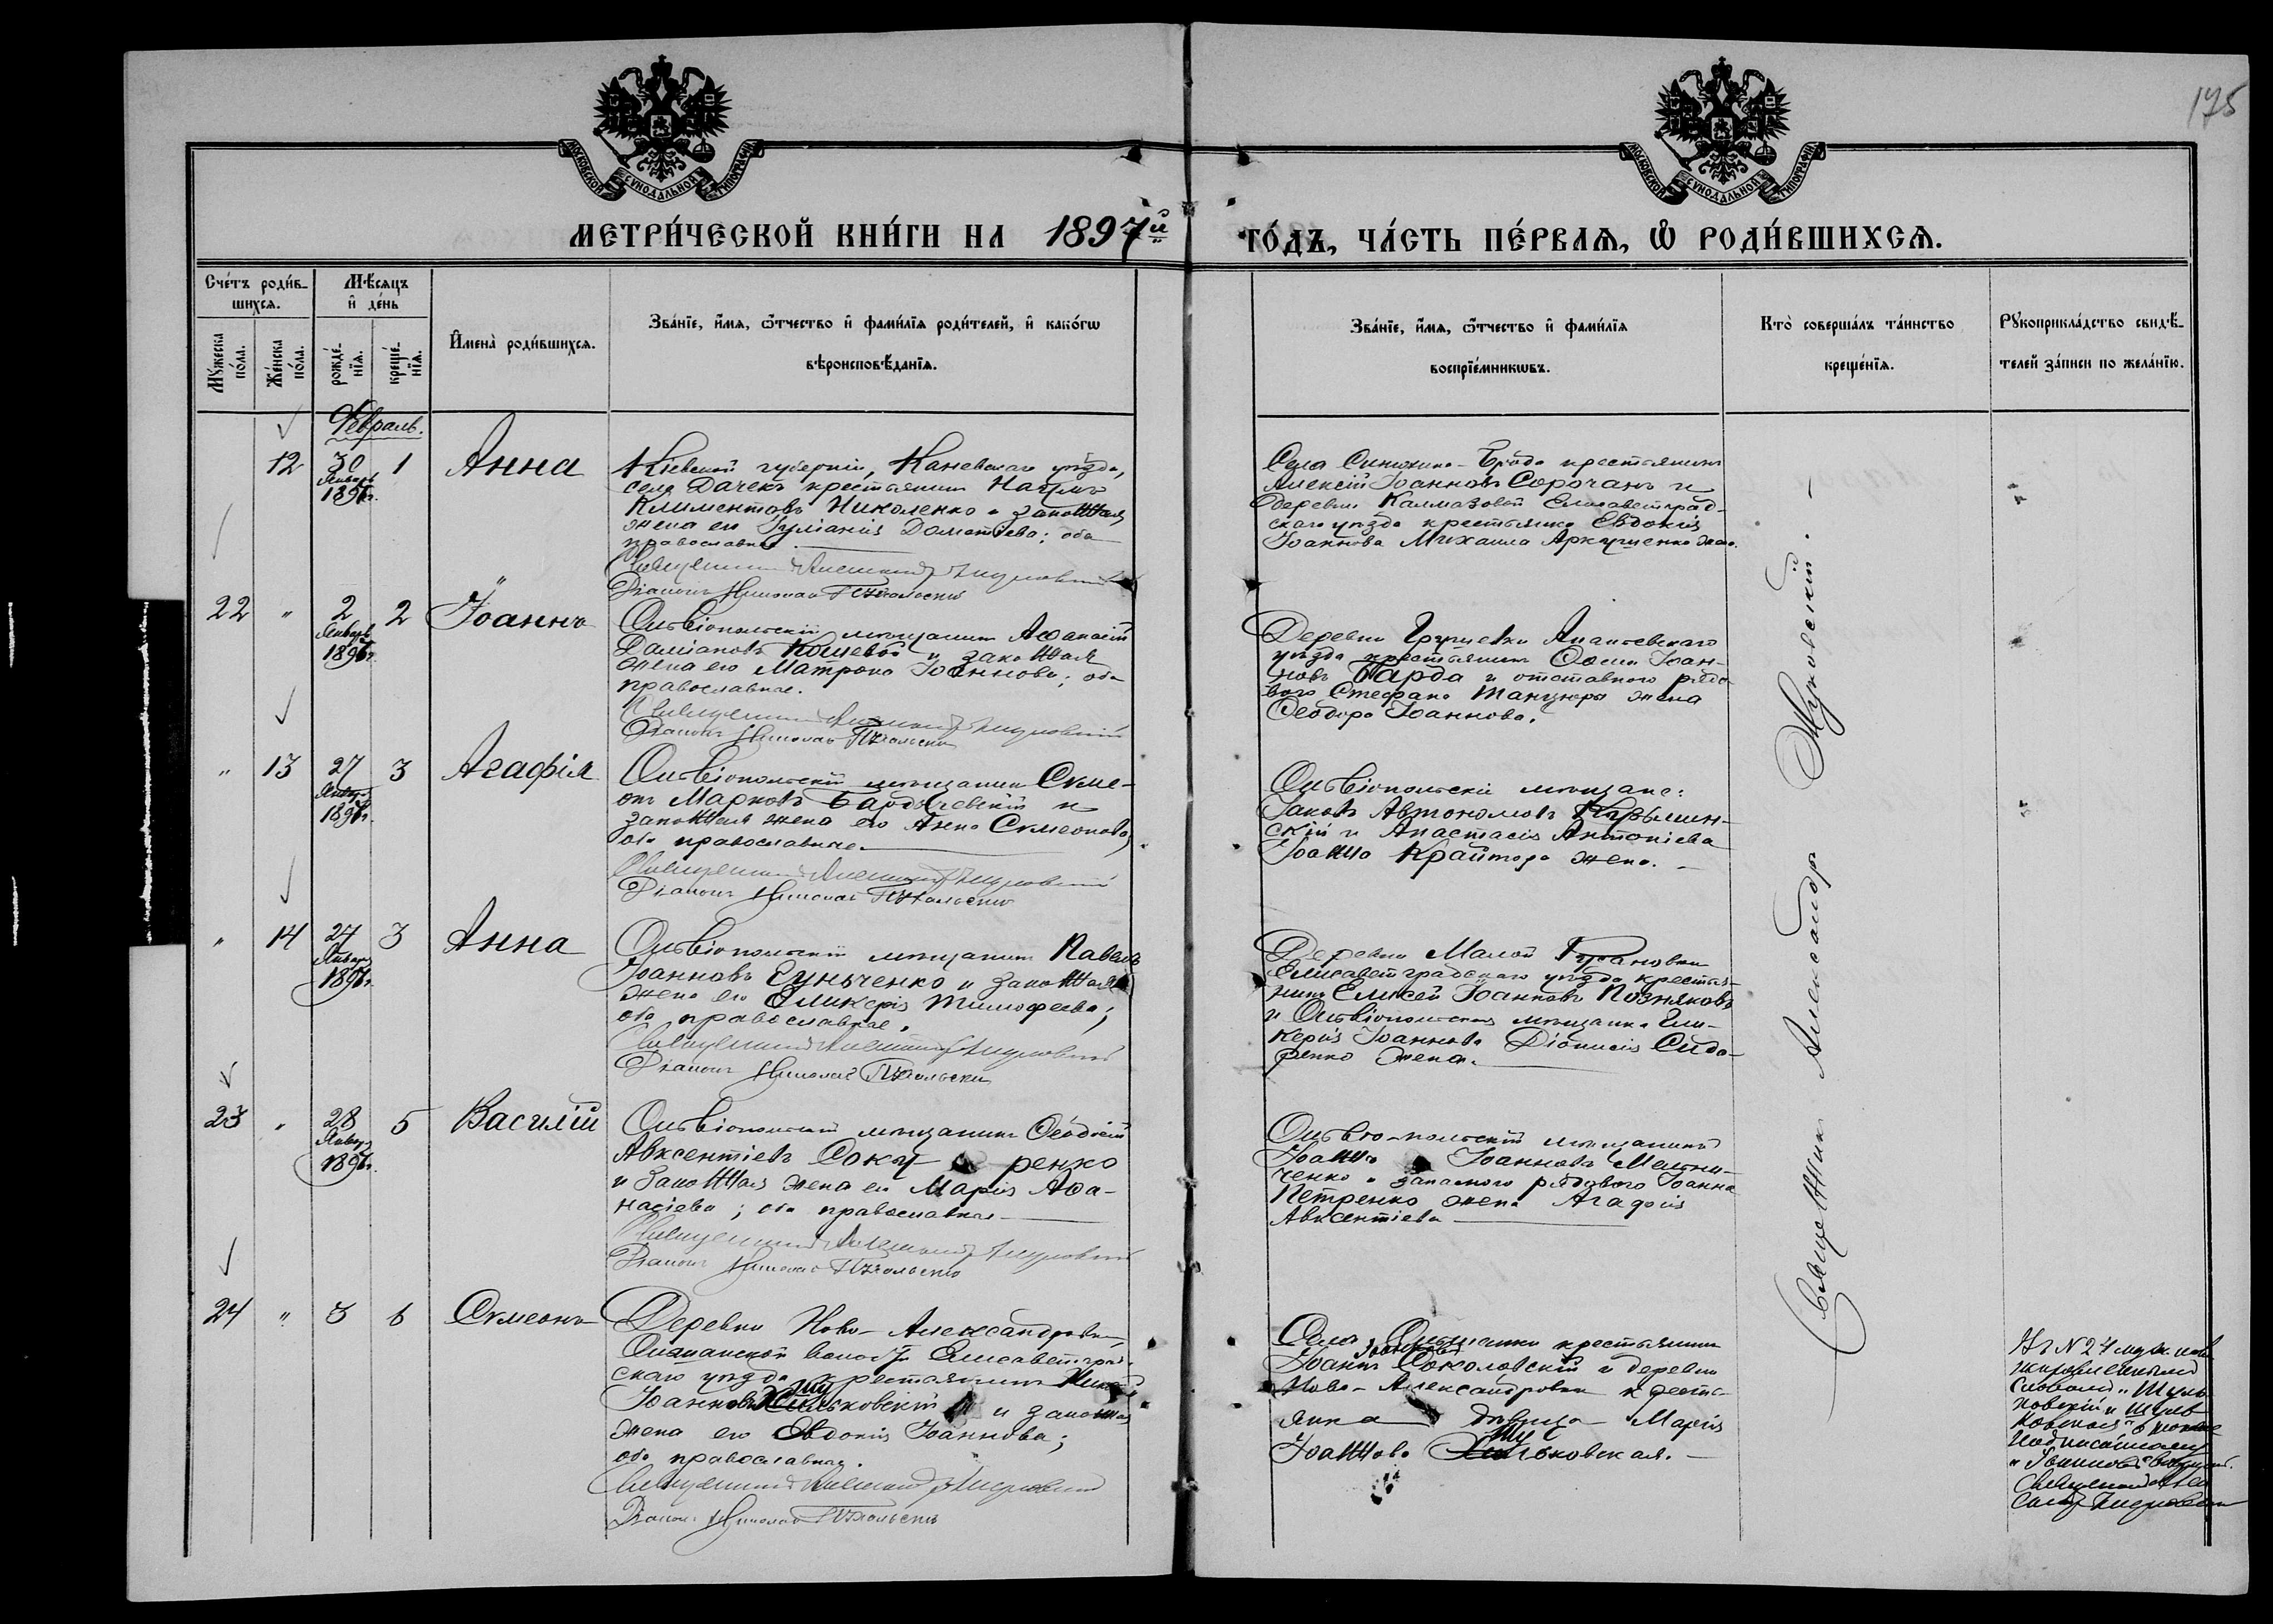 175
МОСКОВСКОЙ СѴНОДАЛЬНОЙ ТИПОГРАФІИ
МОСКОВСКОЙ СѴНОДАЛЬНОЙ ТИПОГРАФІИ
МЕТРИ́ЧЕСКОЙ КНИ́ГИ НА 1897й ГО́ДЪ, ЧА́СТЬ ПЕ́РВАѦ, Ѡ҆ РОДИ́ВШИХСѦ.
Сче́тъ роди́в-
шихсѧ.
Мꙋ́жеска
по́ла.
Же́нска
по́ла.
Мѣ́сѧцъ
и҆ де́нь
рожде́-
нїѧ.
креще́-
нїѧ.
И҆мена̀ роди́вшихсѧ.
Зва́нїе, и҆́мѧ, ѻ҆́тчество и҆ фами́лїѧ роди́телей, и҆ како́гѡ
вѣроисповѣ́данїѧ.
Зва́нїе, и҆́мѧ, ѻ҆́тчество и҆ фами́лїѧ
воспрїе́мникѡвъ.
Кто̀ соверша́лъ та́инство
креще́нїѧ.
Рꙋкоприкла́дство свидѣ́-
телей за́писи по жела́нїю.
Февраль.
12 30 Январь 1897г. 1 Анна
Кіевской губерніи, Каневскаго уѣзда,
села Дачекъ крестьянинъ Наумъ
Климентовъ Николенко и законная
жена его Іуліанія Дометіева; оба
православные.
Священникъ Александръ Жуковскій
Діаконъ Николай
Села Синюхина-Брода крестьянинъ
Алексій Іоанновъ Сорочанъ и
деревни Калмазовой Елисаветград-
скаго уѣзда крестьянка Евдокія
Іоаннова Михаила Аркушенко жена.
22 " 2 Январь 1897г. 2 Іоаннъ
Ольвіопольскій мѣщанинъ Аѳанасій
Даміановъ Кошевой и законная
жена его Матрона Іоаннова; оба
православные.
Священникъ Александръ Жуковскій
Діаконъ Николай
Деревни Грушевки Ананьевскаго
уѣзда крестьянинъ Іоан-
новъ Гарда и отставного рядо-
вого Стефана Танцюры жена
Ѳеодора Іоаннова.
" 13 27 Январь 1897г. 3 Агафія
Ольвіопольскій мѣщанинъ Сѵме-
онъ Марковъ Бардачевскій и
законная жена его Анна Сѵмеонова,
оба православные.
Священникъ Александръ Жуковскій
Діаконъ Николай
Ольвіопольскіе мѣщане:
Іаковъ Автономовъ
скій и Анастасія Антоніева
Іоанна жена.
" 14 27 Январь 1897г. 3 Анна
Ольвіопольскій мѣщанинъ Павелъ
Іоанновъ и законная
жена его Гликерія Тимофеева;
оба православные.
Священникъ Александръ Жуковскій
Діаконъ Николай
Деревни Малой
Елисаветградскаго уѣзда крестья-
нинъ Елисей Іоанновъ Позняковъ
и Ольвіопольская мѣщанка Гли-
керія Іоаннова Діонисія Сидо-
ренко жена.
23 " 28 Январь 1897г. 5 Василій
Ольвіопольскій мѣщанинъ Ѳеодосій
Авксентіевъ Соку ренко
и законная жена его Марія Аѳа-
насіева; оба православные
Священникъ Александръ Жуковскій
Діаконъ Николай
Ольвіо-польскій мѣщанинъ
Іоаннъ Іоанновъ Мельни-
ченко и запасного рядового Іоанна
Петренко жена Агафія
Авксентіева
24 " 3 6 Сѵмеонъ
Деревни Ново-Александровки
волости Елисаветград-
скаго уѣзда крестьянинъ
Іоанновъ Шульковскій и законная
жена его Евдокія Іоаннова;
оба православные.
Священникъ Александръ Жуковскій
Діаконъ Николай
Села Ольшанки крестьянинъ
Іоаннъ Іоанновъ Соколовскій и деревни
Ново-Александровки кресть-
янка дѣвица Марія
Іоаннова Шульковская.
Священникъ Александръ Жуковскій.
Въ № 24 муж. пола
словамъ „Шуль-
ковскій и Шуль-
ковская"
„Іоанновъ"
Священникъ Алек-
сандръ Жуковскій